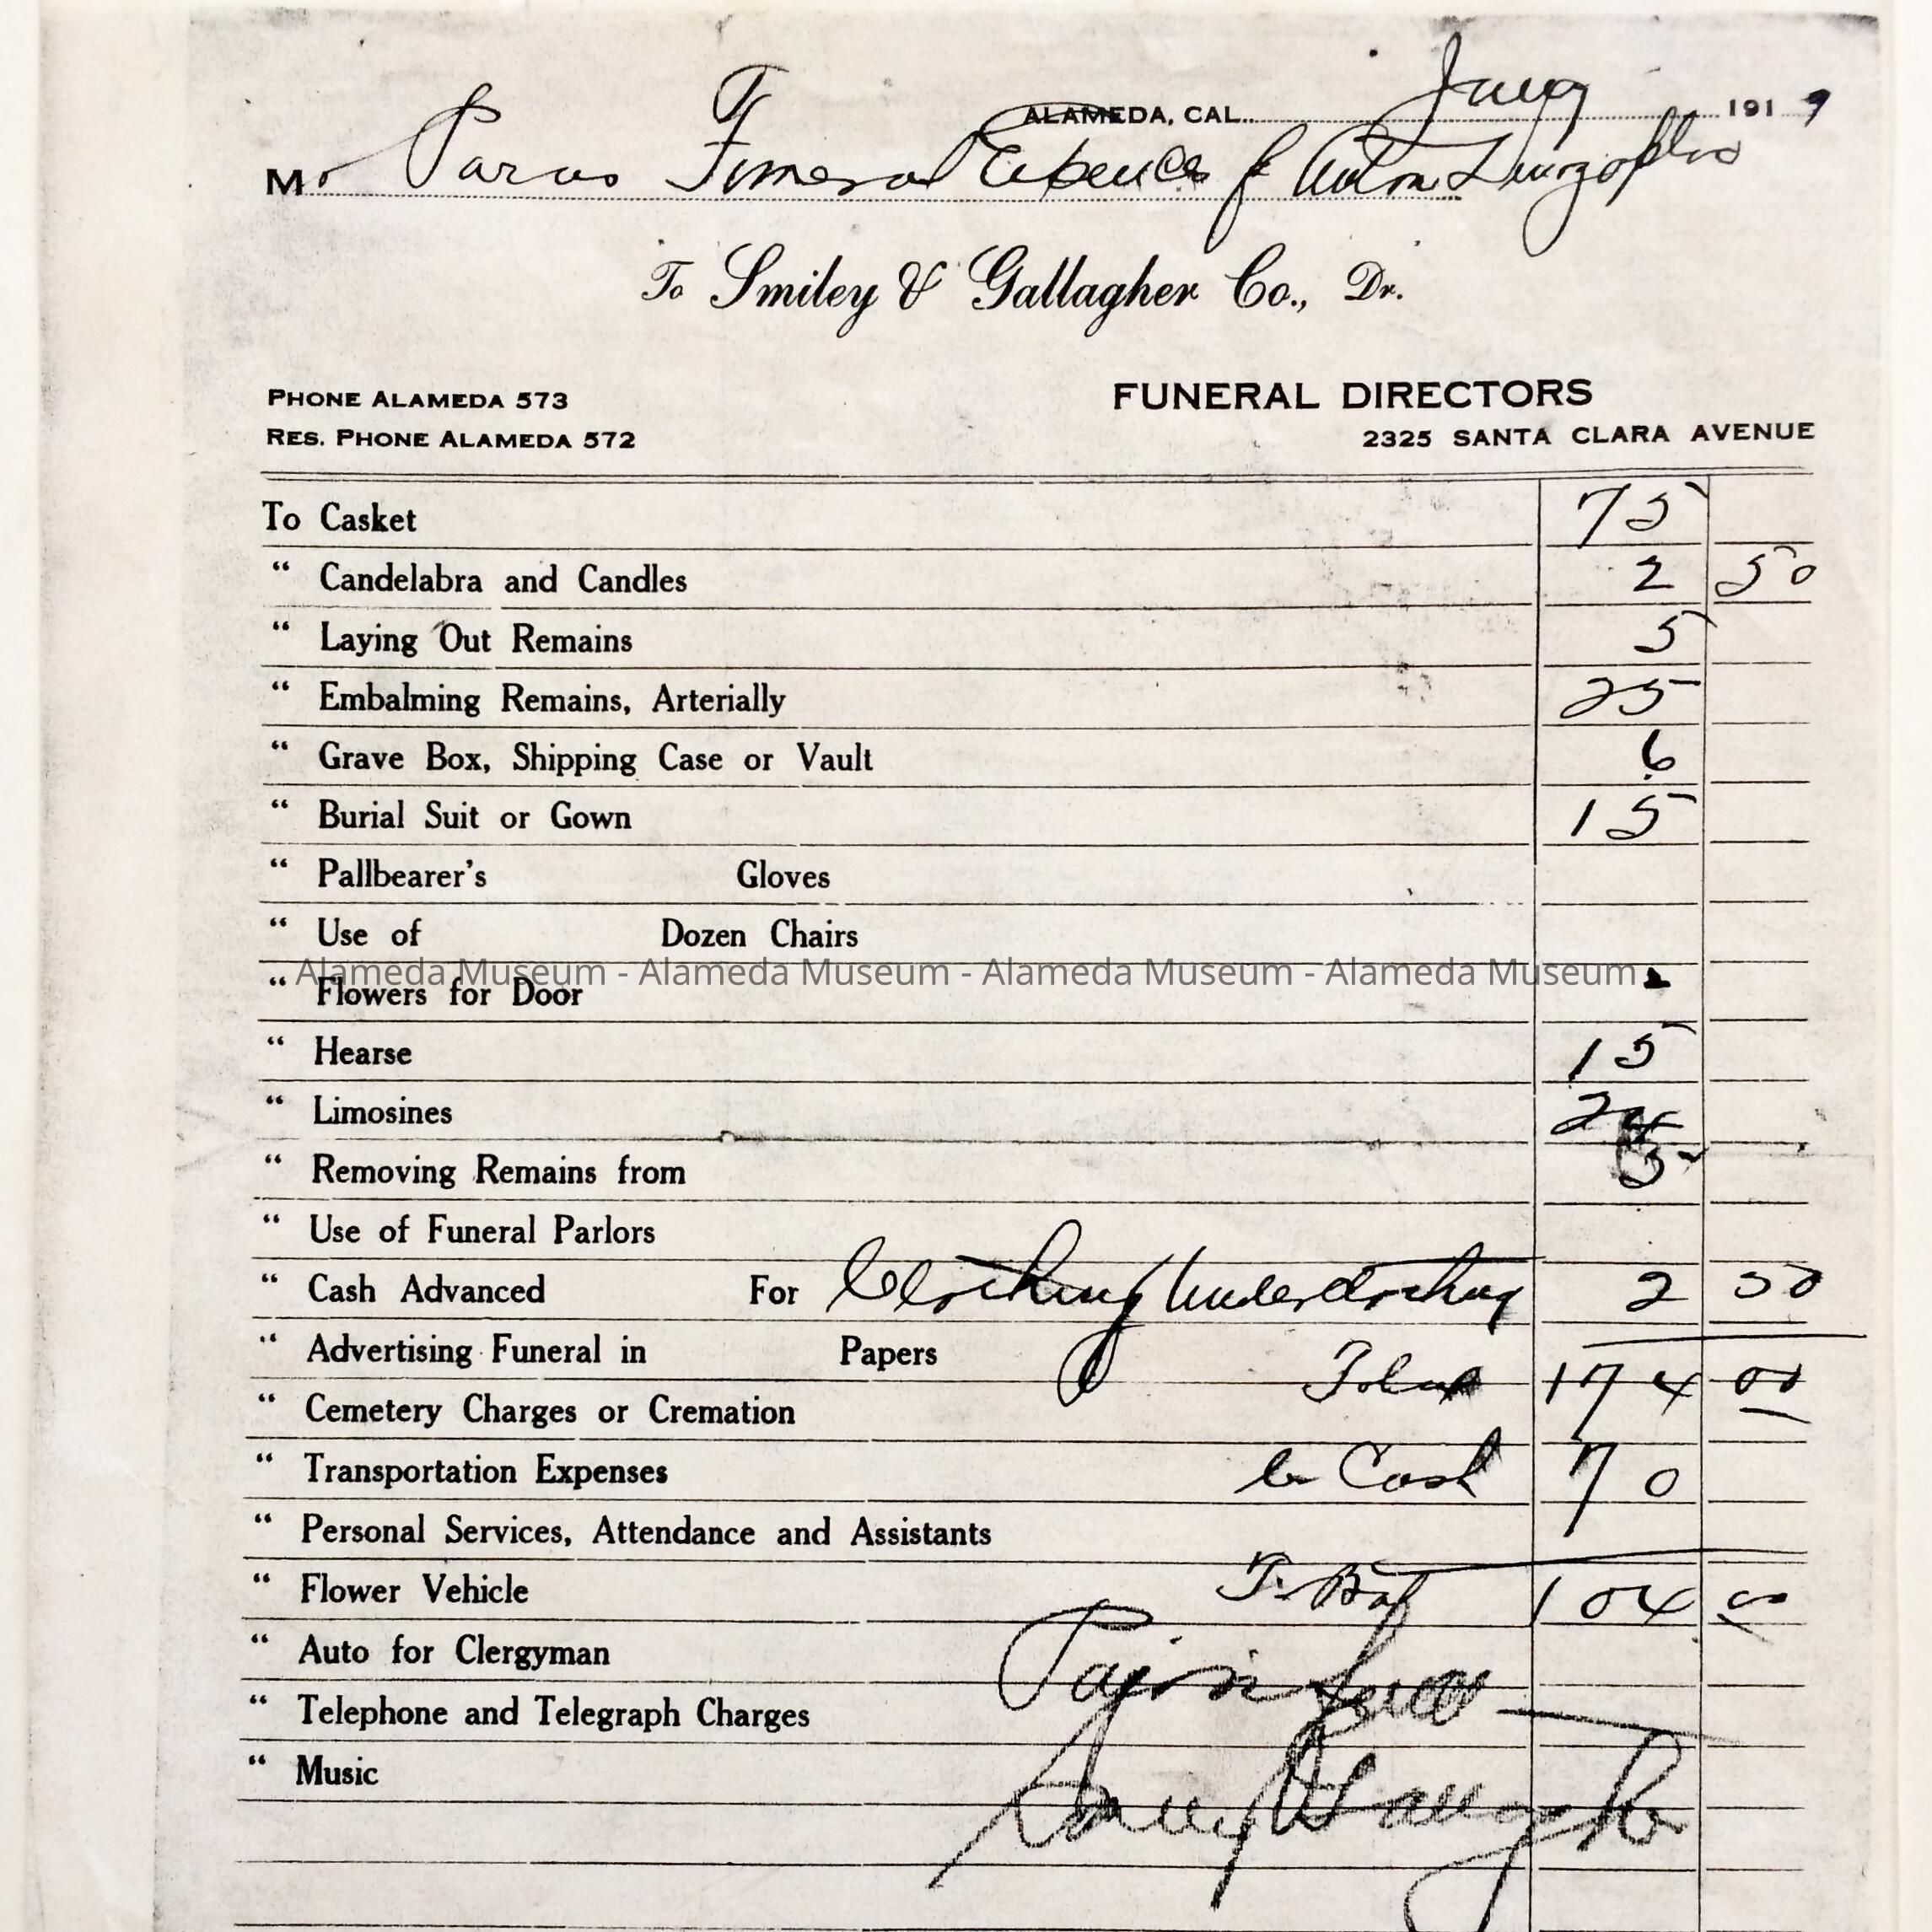 ALAMEDA, CAL. 191 9
Mr Funeral Expences of Anton
To Smiley & Gallagher Co., Dr.
PHONE ALAMEDA 573
FUNERAL DIRECTORS
RES. PHONE ALAMEDA 572
2325 SANTA CLARA AVENUE
To Casket 75
“ Candelabra and Candles 2 50
“ Laying Out Remains 5
“ Embalming Remains, Arterially 25
“ Grave Box, Shipping Case or Vault 6
“ Burial Suit or Gown 15
“ Pallbearer's Gloves
“ Use of Dozen Chairs
Alameda Museum - Alameda Museum - Alameda Museum - Alameda Museum
“ Flowers for Door
“ Hearse 15
“ Limosines
“ Removing Remains from 5
“ Use of Funeral Parlors
“ Cash Advanced For Clothing Underclothing 2 50
“ Advertising Funeral in Papers Total 174 00
“ Cemetery Charges or Cremation
“ Transportation Expenses Cash 70
“ Personal Services, Attendance and Assistants
“ Flower Vehicle Bal 104 00
“ Auto for Clergyman
“ Telephone and Telegraph Charges
“ Music